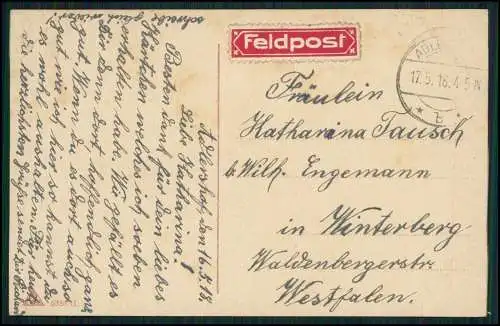 Feldpost
ADL
17.5.16. 4-5 N
* b *
Fräulein
Katharina Tausch
b. Wilh. Engemann
in Winterberg
Waldenbergerstr.
Westfalen.
Adlershof, den 16.5.18.
Liebe Katharina!
Besten Dank für dein liebes
Kärtchen welches ich soeben
erhalten habe. Wie gefällt es
Dir denn dort hoffendlich ganz
gut. Wenn du es dort auch so
gut wie ich hier so kannst du
es wohl aushalten. Für heute
die herzlichsten Grüße sendet Dir
schreibe gleich wieder